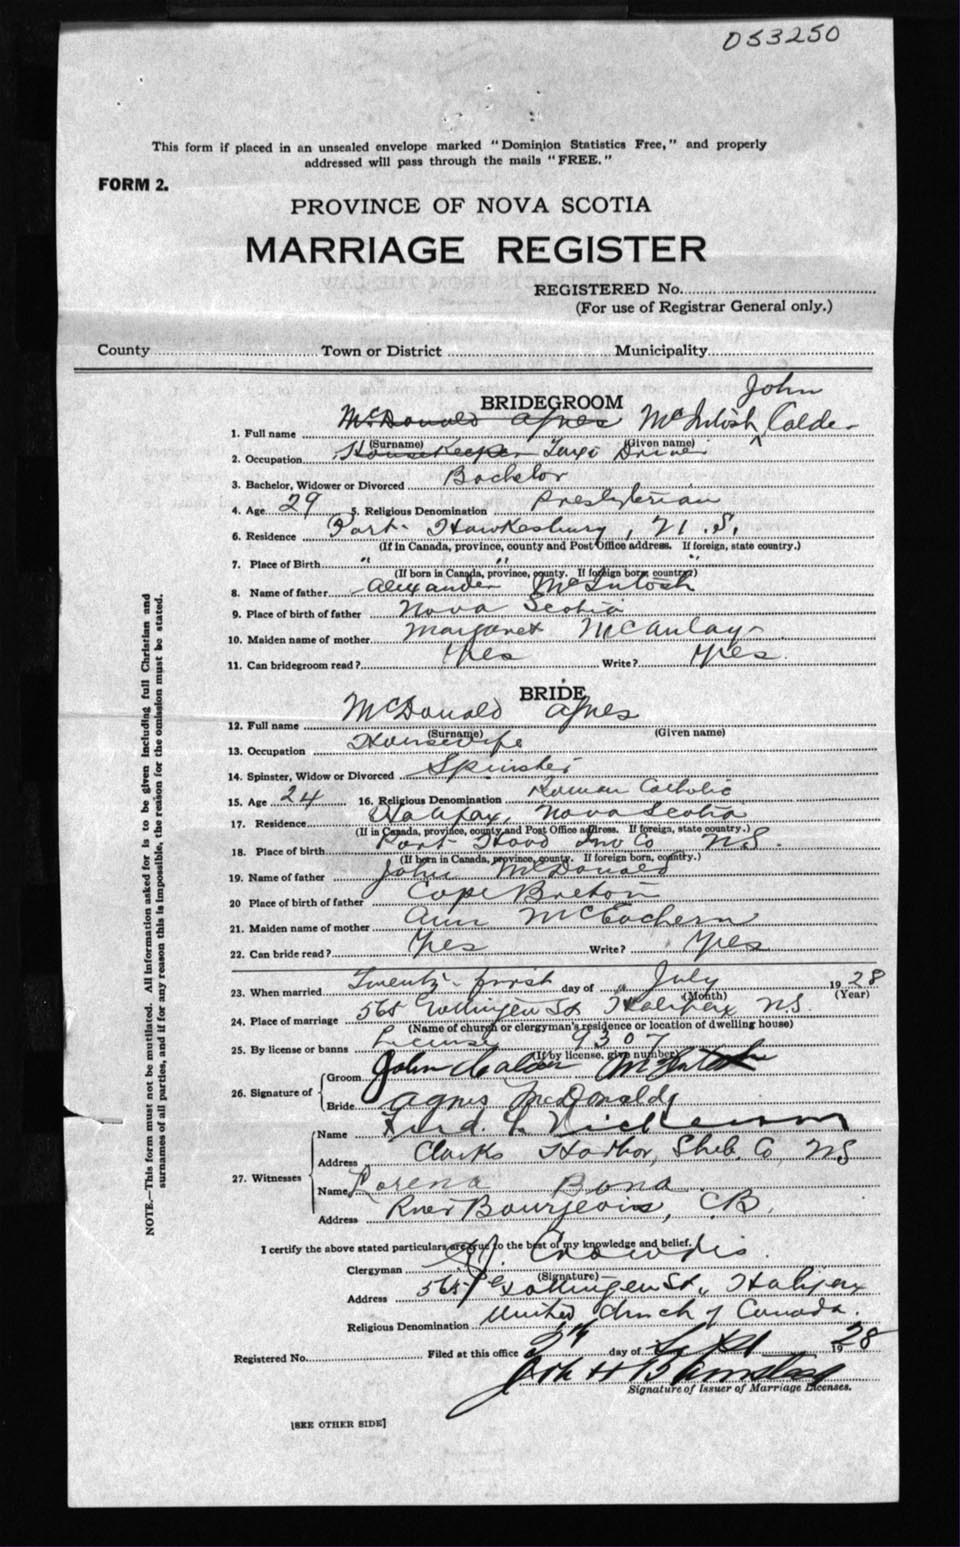 053250
This form if placed in an unsealed envelope marked "Dominion Statistics Free," and properly
addressed will pass through the mails "FREE."
FORM 2.
PROVINCE OF NOVA SCOTIA
MARRIAGE REGISTER
REGISTERED No.
(For use of Registrar General only.)
County Town or District Municipality
BRIDEGROOM John
1. Full name McDonald Agnes McIntosh, Calder
(Surname) (Given name)
2. Occupation Housekeeper Taxi Driver
3. Bachelor, Widower or Divorced Bachelor
4. Age 29 5. Religious Denomination Presbyterian
6. Residence Port Hawkesbury, N.S.
(If in Canada, province, county and Post Office address. If foreign, state country.)
7. Place of Birth " " "
(If born in Canada, province, county. If foreign born, country)
8. Name of father Alexander McIntosh
9. Place of birth of father Nova Scotia
10. Maiden name of mother Margaret McAulay
11. Can bridegroom read? Yes Write? Yes
BRIDE
12. Full name McDonald Agnes
(Surname) (Given name)
13. Occupation Housewife
14. Spinster, Widow or Divorced Spinster
15. Age 24 16. Religious Denomination Roman Catholic
17. Residence Halifax, Nova Scotia
(If in Canada, province, county and Post Office address. If foreign, state country.)
18. Place of birth Port Hood Inv Co N.S.
(If born in Canada, province, county. If foreign born, country.)
19. Name of father John McDonald
20 Place of birth of father Cape Breton
21. Maiden name of mother Ann McEachern
22. Can bride read? Yes Write? Yes
23. When married Twenty-first day of July 1928
(Month) (Year)
24. Place of marriage 565 Gottingen St Halifax N.S.
(Name of church or clergyman's residence or location of dwelling house)
25. By license or banns License 9307
(If by license, give number)
26. Signature of Groom John Calder McIntosh
Bride Agnes McDonald
27. Witnesses Name Ferd. Nickerson
Address Clarks Harbor, Shelb. Co, NS
Name Lorena Bona
Address River Bourgeois, C.B.
I certify the above stated particulars are true to the best of my knowledge and belief.
Clergyman Crowdis
(Signature)
Address 565 Gottingen St., Halifax
Religious Denomination United Church of Canada.
Registered No. Filed at this office day of Sept 1928
Signature of Issuer of Marriage Licenses.
[SEE OTHER SIDE]
NOTE.—This form must not be mutilated. All information asked for is to be given including full Christian and
surnames of all parties, and if for any reason this is impossible, the reason for the omission must be stated.